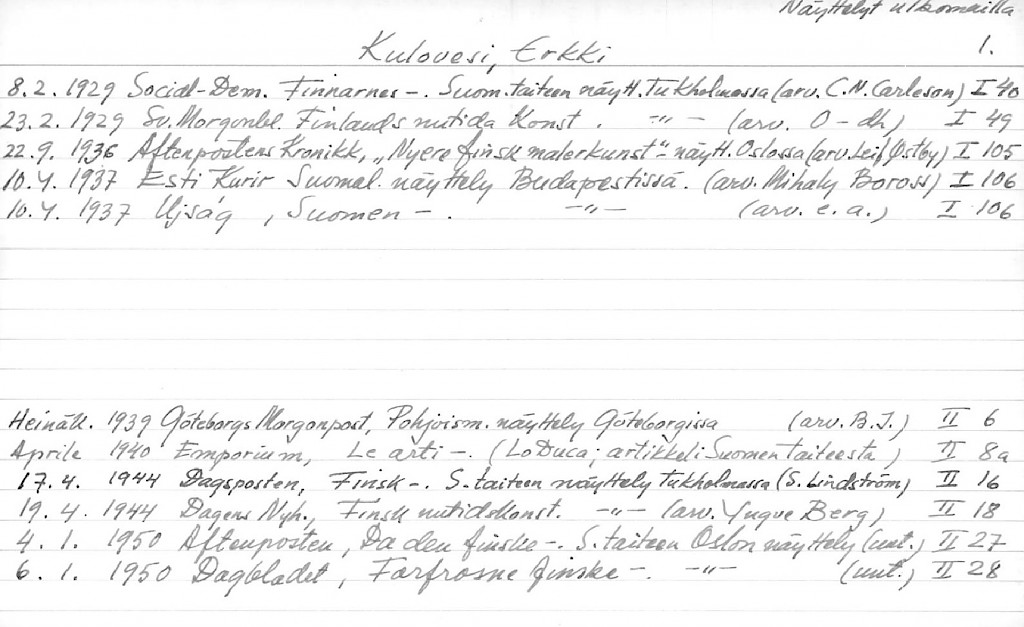 Näyttelyt ulkomailla
1.
Kulovesi, Erkki
8.2. 1929 Social-Dem. Finnarnes -. Suom. taiteen näytt. Tukholmassa (arv. C.N. Carleson) I 40
23.2. 1929 Sv. Morgonbl. Finlands nutida Konst. -"- (arv. O-dh) I 49
22.9. 1936 Aftenpostens Kronikk, "Nyere finsk malerkunst"- näytt. Oslossa (arv. Leif Østby) I 105
10.4. 1937 Esti Kurir Suomal. näyttely Budapestissä. (arv. Mihaly Boross) I 106
10.4. 1937 Ujság, Suomen -. -"- (arv. e.a.) I 106
Heinäk. 1939 Göteborgs Morgonpost, Pohjoism. näyttely Göteborgissa (arv. B.J.) II 6
Aprile 1940 Emporium, Le arti -. (Lo Duca; artikkeli Suomen taiteesta) II 8a
17.4. 1944 Dagsposten, Finsk -. S. taiteen näyttely Tukholmassa (S. Lindström) II 16
19.4. 1944 Dagens Nyh., Finsk nutidskonst. -"- (arv. Yngve Berg) II 18
4.1. 1950 Aftenposten, Da den finske -. S. taiteen Oslon näyttely (uut.) II 27
6.1. 1950 Dagbladet, Farfrosne finske -. -"- (uut.) II 28